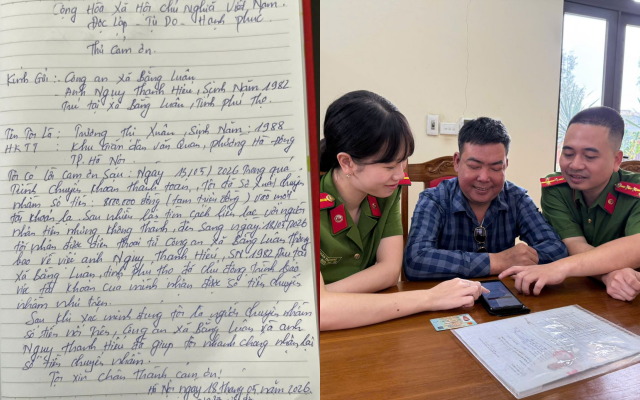 Cộng Hòa Xã Hội Chủ Nghĩa Việt Nam
Độc Lập - Tự Do - Hạnh phúc
Thư Cảm ơn.
Kính Gửi: - Công an Xã Bằng Luân
- Anh Ngụy Thanh Hiếu, Sinh Năm 1982
Trú tại Xã Bằng Luân, Tỉnh Phú Thọ.
Tên Tôi Là: Trương Thị Xuân, Sinh Năm: 1988
HKTT: Khu giãn dân Văn Quán, phường Hà Đông
TP. Hà Nội
Tôi có lá cảm ơn Sau: Ngày 15/05/2026 Trong quá
Trình chuyển khoản thanh toán, tôi đã Sơ Xuất chuyển
nhầm số tiền: 800.000 đồng (tám triệu đồng) vào một
tài khoản lạ. Sau nhiều lần tìm cách liên lạc với người
nhận tiền nhưng không thành, đến sáng ngày 18/05/2026
tôi nhận được điện thoại từ Công an Xã Bằng Luân Thông
báo về việc anh Ngụy Thanh Hiếu, SN 1982 trú tại
Xã Bằng Luân, tỉnh phú thọ đã chủ động trình báo
về tài khoản của mình nhận được số tiền chuyển
nhầm như trên.
Sau khi xác minh đúng tôi là người chuyển nhầm
số tiền nói trên, Công an xã Bằng Luân và anh
Ngụy Thanh Hiếu đã giúp tôi nhanh chóng nhận lại
số tiền chuyển nhầm.
Tôi xin chân thành cảm ơn!
Hà Nội ngày 18 tháng 05 năm 2026